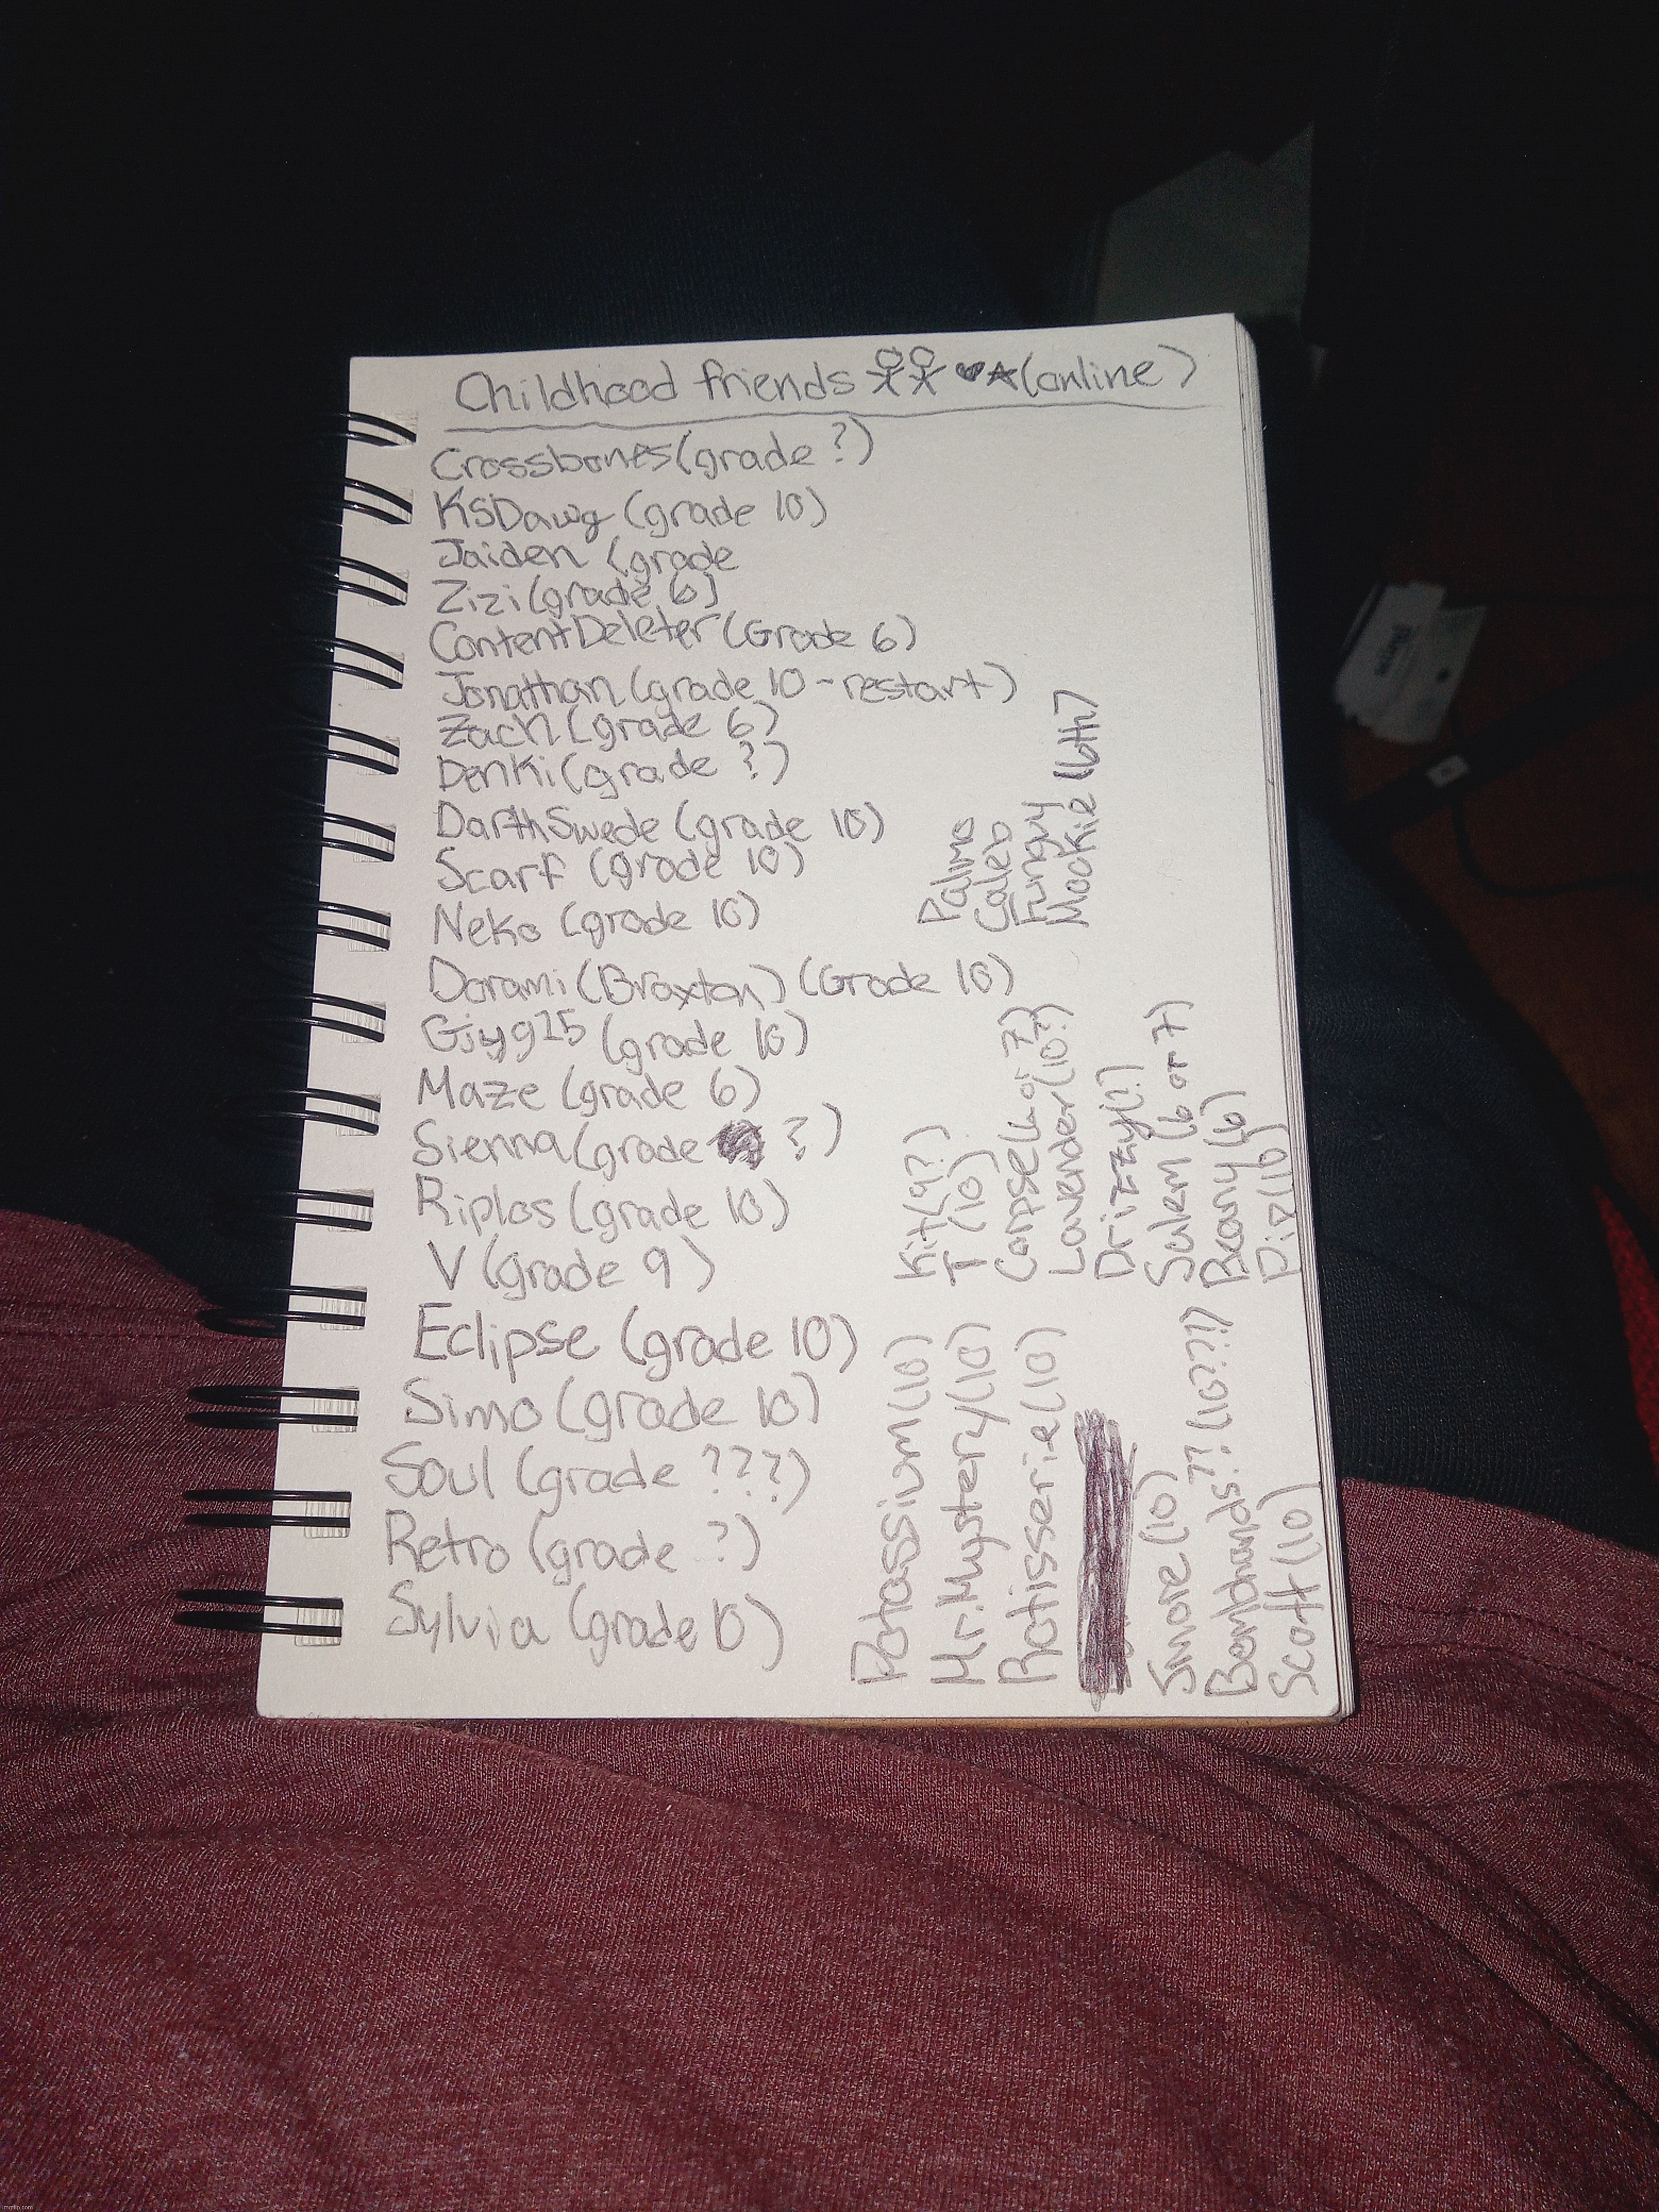 Childhood friends (online)
Crossbones (grade ?)
KSDawg (grade 10)
Jaiden (grade
Zizi (grade 6)
ContentDeleter (Grade 6)
Jonathan (grade 10 - restart)
Zach (grade 6)
Denki (grade ?)
DarthSwede (grade 10)
Scarf (grade 10)
Neko (grade 10)
Dorami (Braxton) (Grade 10)
Giyg25 (grade 10)
Maze (grade 6)
Sienna (grade ?)
Riplos (grade 10)
V (grade 9)
Eclipse (grade 10)
Simo (grade 10)
Soul (grade ???)
Retro (grade ?)
Sylvia (grade 10)
Palma
Caleb
Fungu
Mookie (6th)
Kit (9?)
T (10)
Corpse (6 or 7)
Lavender (10?)
Drizzy (?)
Salem (6 or 7)
Beany (6)
Potassium (10)
Mr. Mystery (10)
Rotisserie (10)
Smore (10)
Bombhands?? (10???)
Scott (10)
imgflip.com